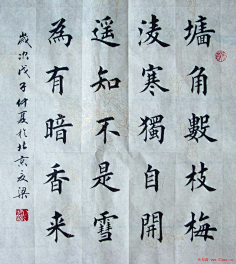 墻角數枝梅
凌寒獨自開
遥知不是雪
為有暗香来
歲次戊子仲夏於北京友梁